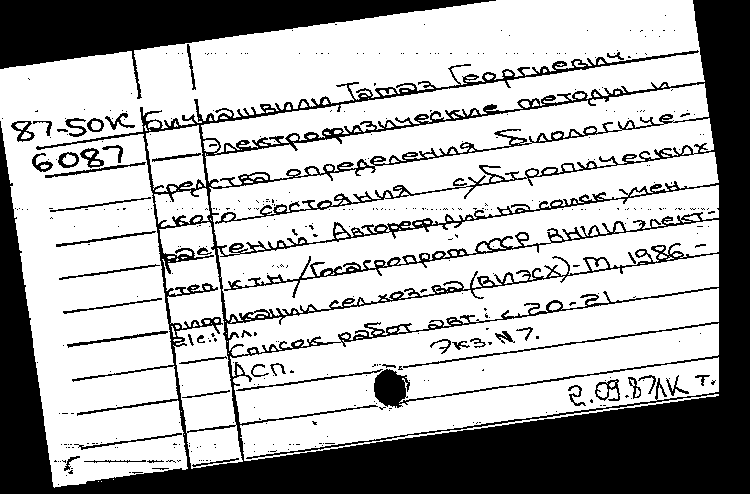 87-50К
6087
Бичиашвили, Татаз Георгиевич.
Электрофизические методы и
средства определения биологиче-
ского состояния субтропических
растений: Автореф. дис. на соиск. учен.
степ. к.т.н. / Госагропром СССР, ВНИИ элект-
рификации сел. хоз-ва (ВИЭСХ)-М., 1986.-
21с.: ил.
Список работ авт.: с. 20-21.
ДСП. Экз. N 7.
2.09.87 ЛК т.